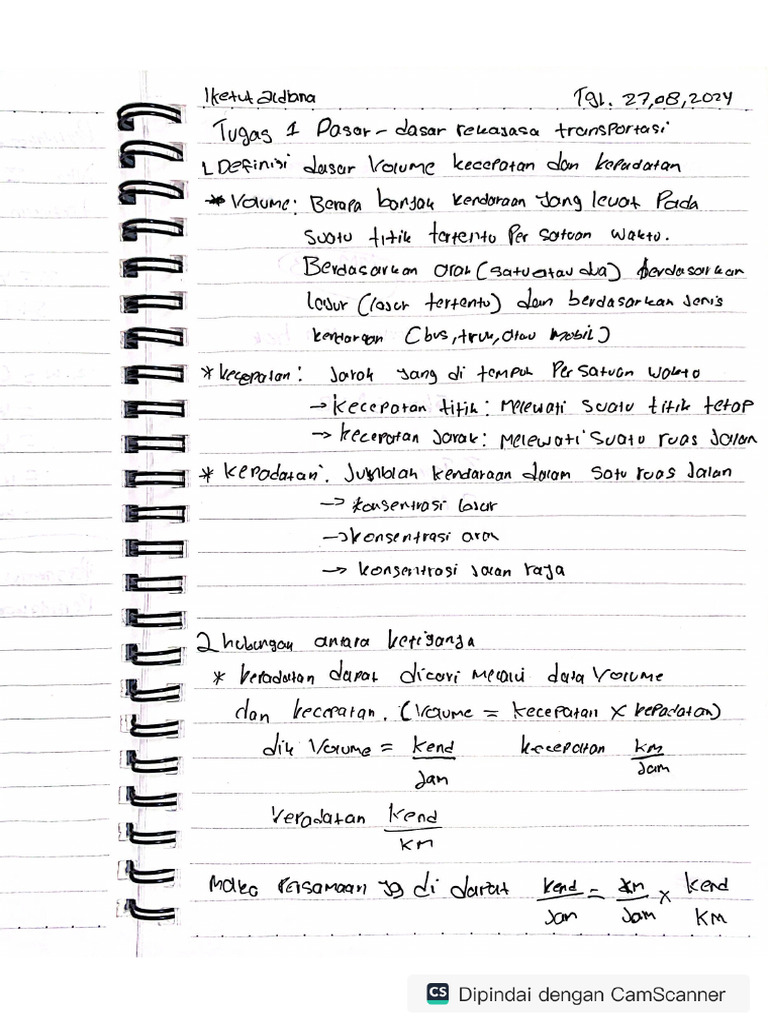 I ketut aldbana
Tgl. 27,08,2024
Tugas 1 Dasar-dasar rekayasa transportasi
1. Definisi dasar Volume kecepatan dan kepadatan
* Volume: Berapa banyak kendaraan yang lewat Pada
suatu titik tertentu Per satuan waktu.
Berdasarkan arah (satu atau dua) berdasarkan
lajur (lajur tertentu) dan berdasarkan Jenis
kendaraan (bus, truk, atau mobil)
* kecepatan: Jarak yang di tempuh Per satuan waktu
→ kecepatan titik: Melewati suatu titik tetap
→ kecepatan Jarak: Melewati suatu ruas Jalan
* kepadatan: Jumblah kendaraan dalam satu ruas Jalan
→ konsentrasi lajur
→ konsentrasi arah
→ konsentrasi Jalan raya
2 hubungan antara ketiganya
* kepadatan dapat dicari melalui data Volume
dan kecepatan. (Volume = kecepatan x kepadatan)
dik Volume = kend/Jam kecepatan km/Jam
kepadatan kend/km
Maka Persamaan yg di dapat kend/Jam = km/Jam x kend/KM
CS Dipindai dengan CamScanner